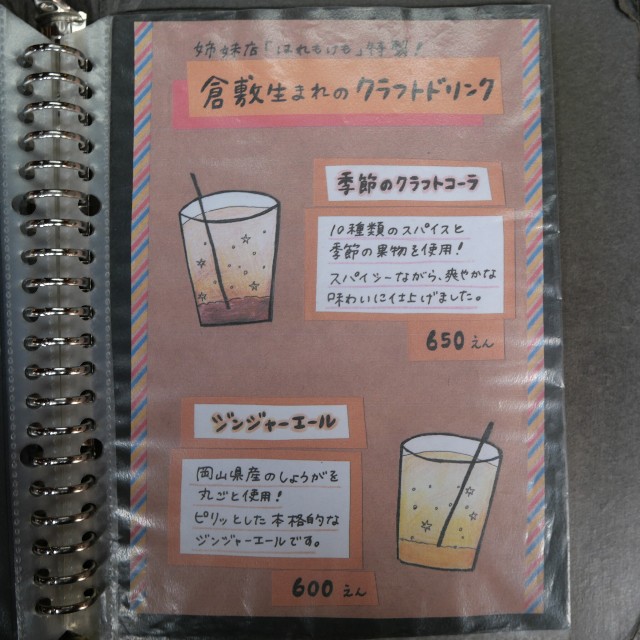 姉妹店「はれもけも」特製!
倉敷生まれのクラフトドリンク
季節のクラフトコーラ
10種類のスパイスと
季節の果物を使用!
スパイシーながら、爽やかな
味わいに仕上げました。
650えん
ジンジャーエール
岡山県産のしょうがを
丸ごと使用!
ピリッとした本格的な
ジンジャーエールです。
600えん